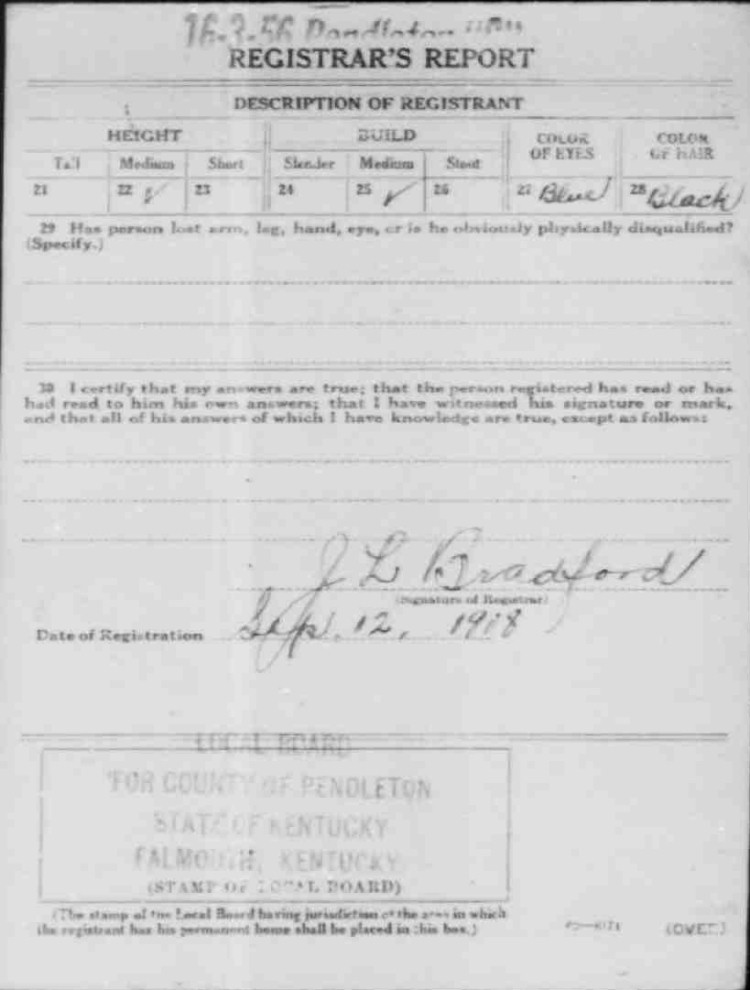 16-3-56 Pendleton
REGISTRAR'S REPORT
DESCRIPTION OF REGISTRANT
HEIGHT BUILD COLOR OF EYES COLOR OF HAIR
Tall Medium Short Slender Medium Stout
21 22 ✓ 23 24 25 ✓ 26 27 Blue 28 Black
29 Has person lost arm, leg, hand, eye, or is he obviously physically disqualified?
(Specify.)
30 I certify that my answers are true; that the person registered has read or has
had read to him his own answers; that I have witnessed his signature or mark,
and that all of his answers of which I have knowledge are true, except as follows:
J L Bradford
(Signature of Registrar)
Date of Registration Sep. 12, 1918
LOCAL BOARD
FOR COUNTY OF PENDLETON
STATE OF KENTUCKY
FALMOUTH, KENTUCKY
(STAMP OF LOCAL BOARD)
(The stamp of the Local Board having jurisdiction of the area in which
the registrant has his permanent home shall be placed in this box.)
(OVER)